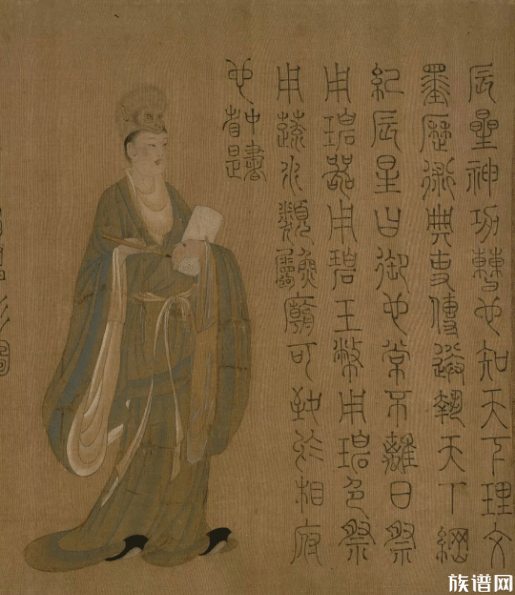 辰星神功曹也知天下理文
墨歷術典吏傳送執天下綱
紀辰星日御也常不離日祭
用碧器用碧玉幣用碧色祭
用蔬水類廟可致於相府
也中書
省是
族谱网